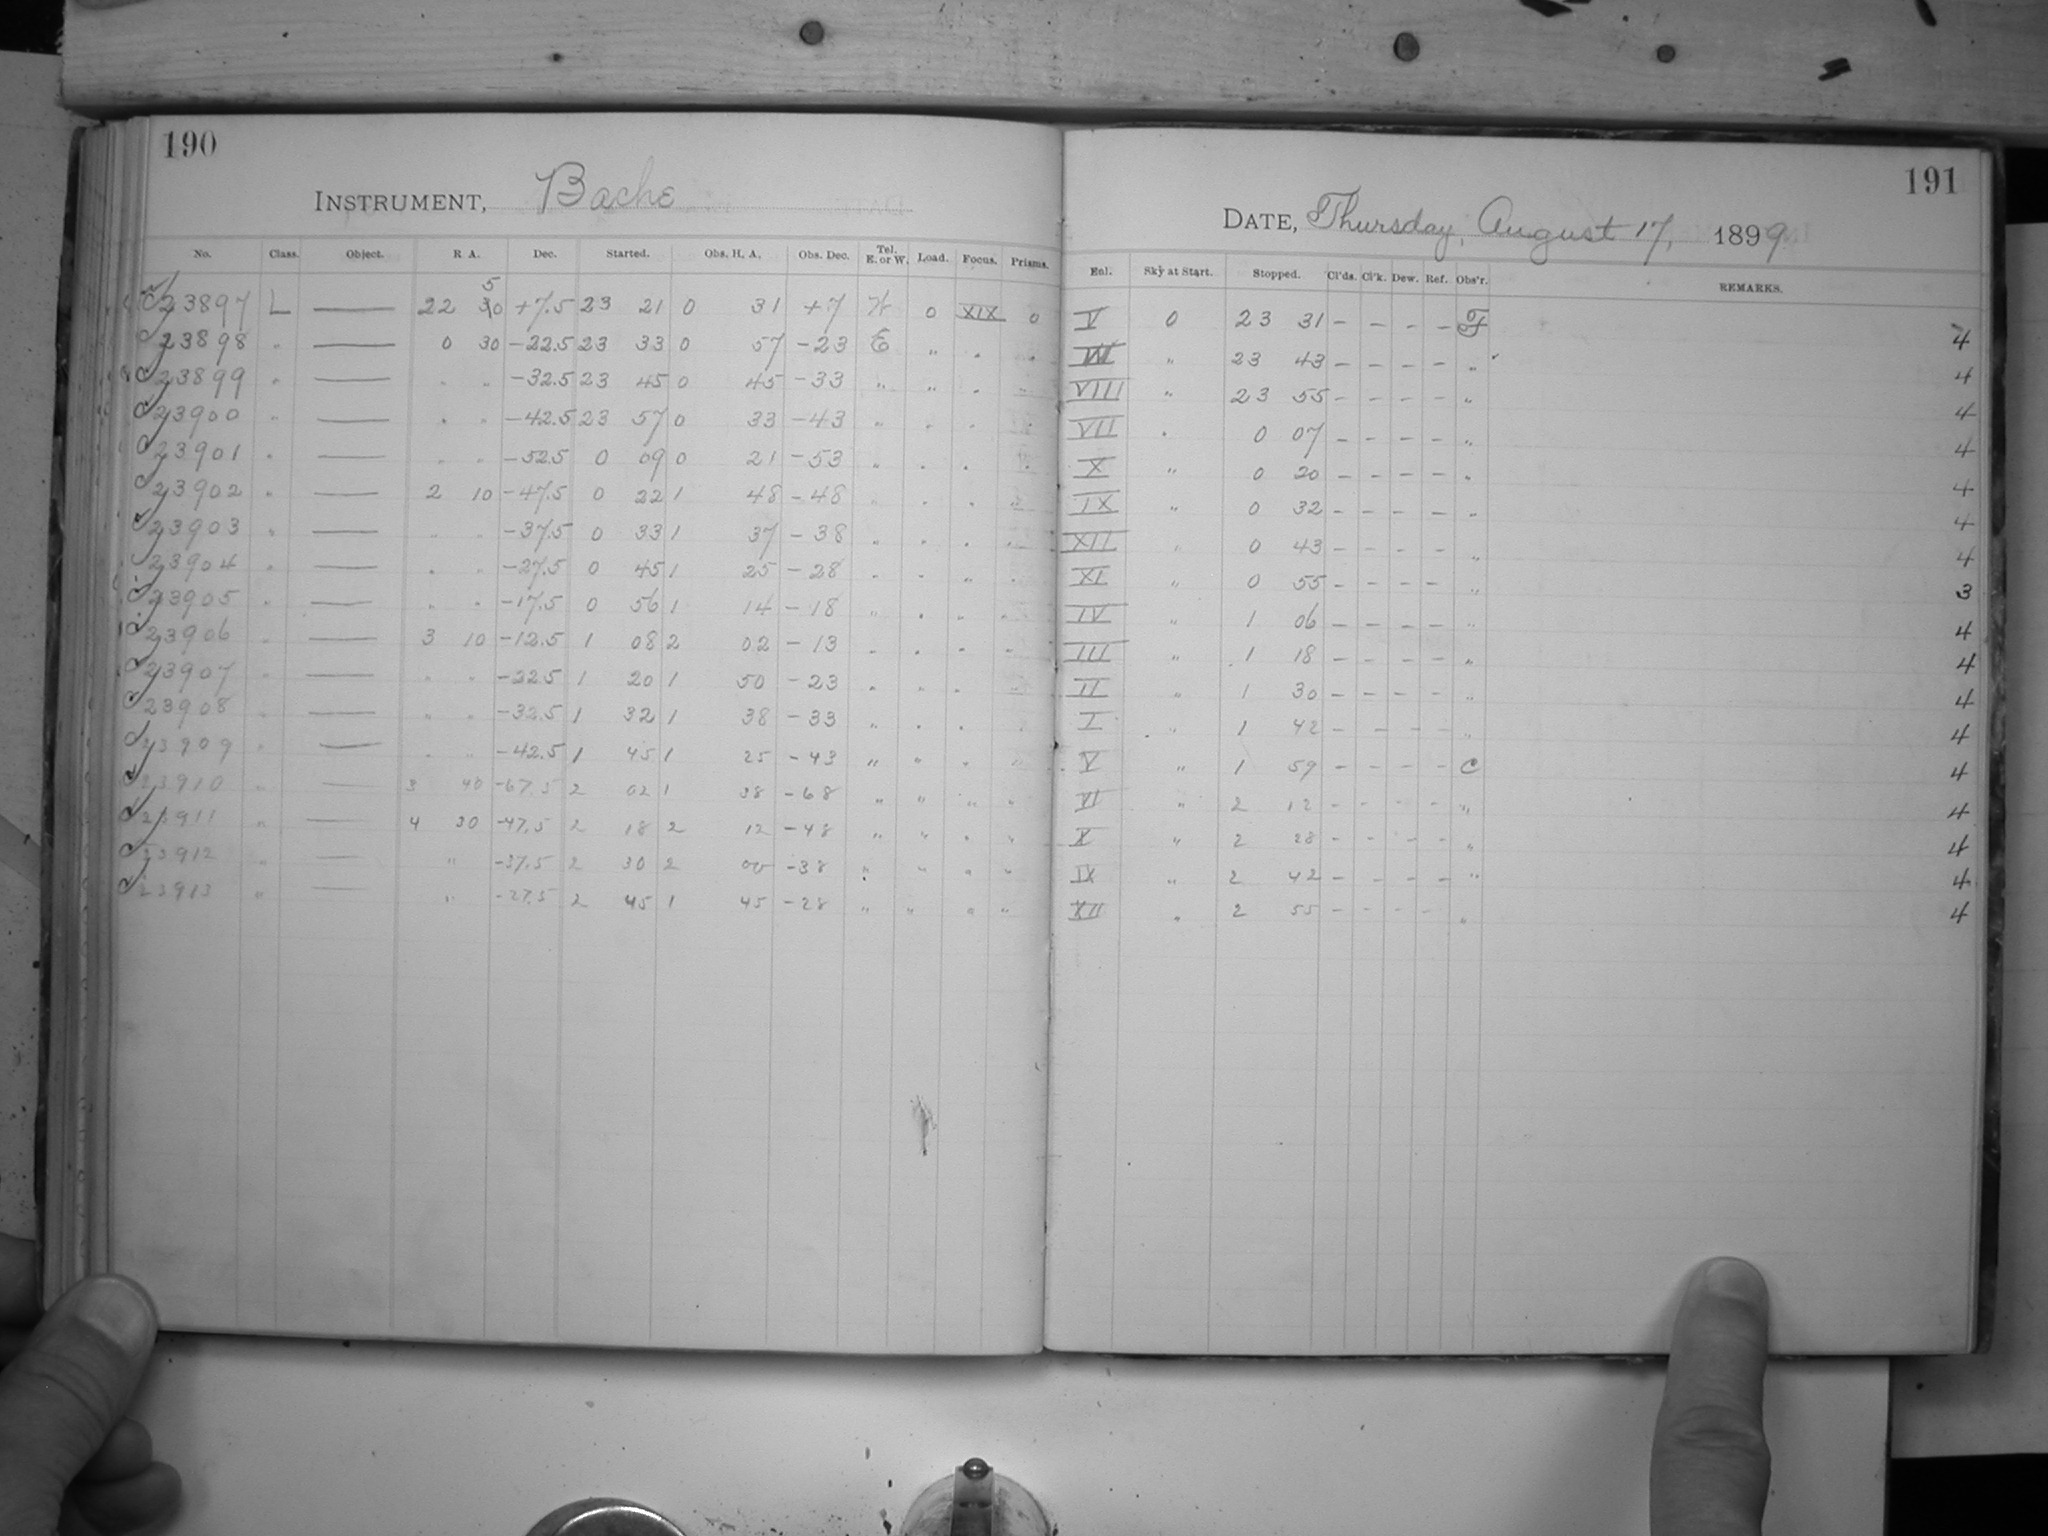 190
INSTRUMENT, Bache
No. Class. Object. R A. Dec. Started. Obs. H. A. Obs. Dec. Tel. E. or W. Load. Focus. Prisms.
5
C 23897 L —— 22 30 +7.5 23 21 0 31 +7 W 0 XIX 0
C 23898 " —— 0 30 -22.5 23 33 0 57 -23 E " " "
C 23899 " —— " " -32.5 23 45 0 45 -33 " " " "
C 23900 " —— " " -42.5 23 57 0 33 -43 " " " "
C 23901 " —— " " -52.5 0 09 0 21 -53 " " " "
C 23902 " —— 2 10 -47.5 0 22 1 48 -48 " " " "
C 23903 " —— " " -37.5 0 33 1 37 -38 " " " "
C 23904 " —— " " -27.5 0 45 1 25 -28 " " " "
C 23905 " —— " " -17.5 0 56 1 14 -18 " " " "
C 23906 " —— 3 10 -12.5 1 08 2 02 -13 " " " "
C 23907 " —— " " -22.5 1 20 1 50 -23 " " " "
C 23908 " —— " " -32.5 1 32 1 38 -33 " " " "
C 23909 " —— " " -42.5 1 45 1 25 -43 " " " "
C 23910 " —— 3 40 -67.5 2 02 1 38 -68 " " " "
C 23911 " —— 4 30 -47.5 2 18 2 12 -48 " " " "
C 23912 " —— " -37.5 2 30 2 00 -38 " " " "
C 23913 " —— " -27.5 2 45 1 45 -28 " " " "
191
DATE, Thursday, August 17, 1899
Enl. Sky at Start. Stopped. Cl'ds. Cl'k. Dew. Ref. Obs'r. REMARKS.
V 0 23 31 — — — — F 4
" 23 43 — — — — " 4
VIII " 23 55 — — — — " 4
VII " 0 07 — — — — " 4
X " 0 20 — — — — " 4
IX " 0 32 — — — — " 4
XII " 0 43 — — — — " 4
XI " 0 55 — — — — " 3
IV " 1 06 — — — — " 4
III " 1 18 — — — — " 4
II " 1 30 — — — — " 4
I " 1 42 — — — — " 4
V " 1 59 — — — — C 4
VI " 2 12 — — — — " 4
X " 2 28 — — — — " 4
IX " 2 42 — — — — " 4
XII " 2 55 — — — — " 4